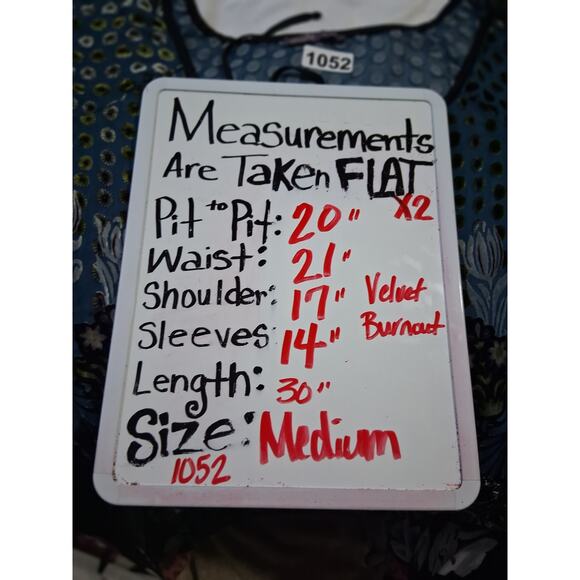 1052
Measurements
Are Taken FLAT
X2
Pit to Pit: 20"
Waist: 21"
Shoulder: 17" Velvet
Sleeves: 14" Burnout
Length: 30"
Size: Medium
1052